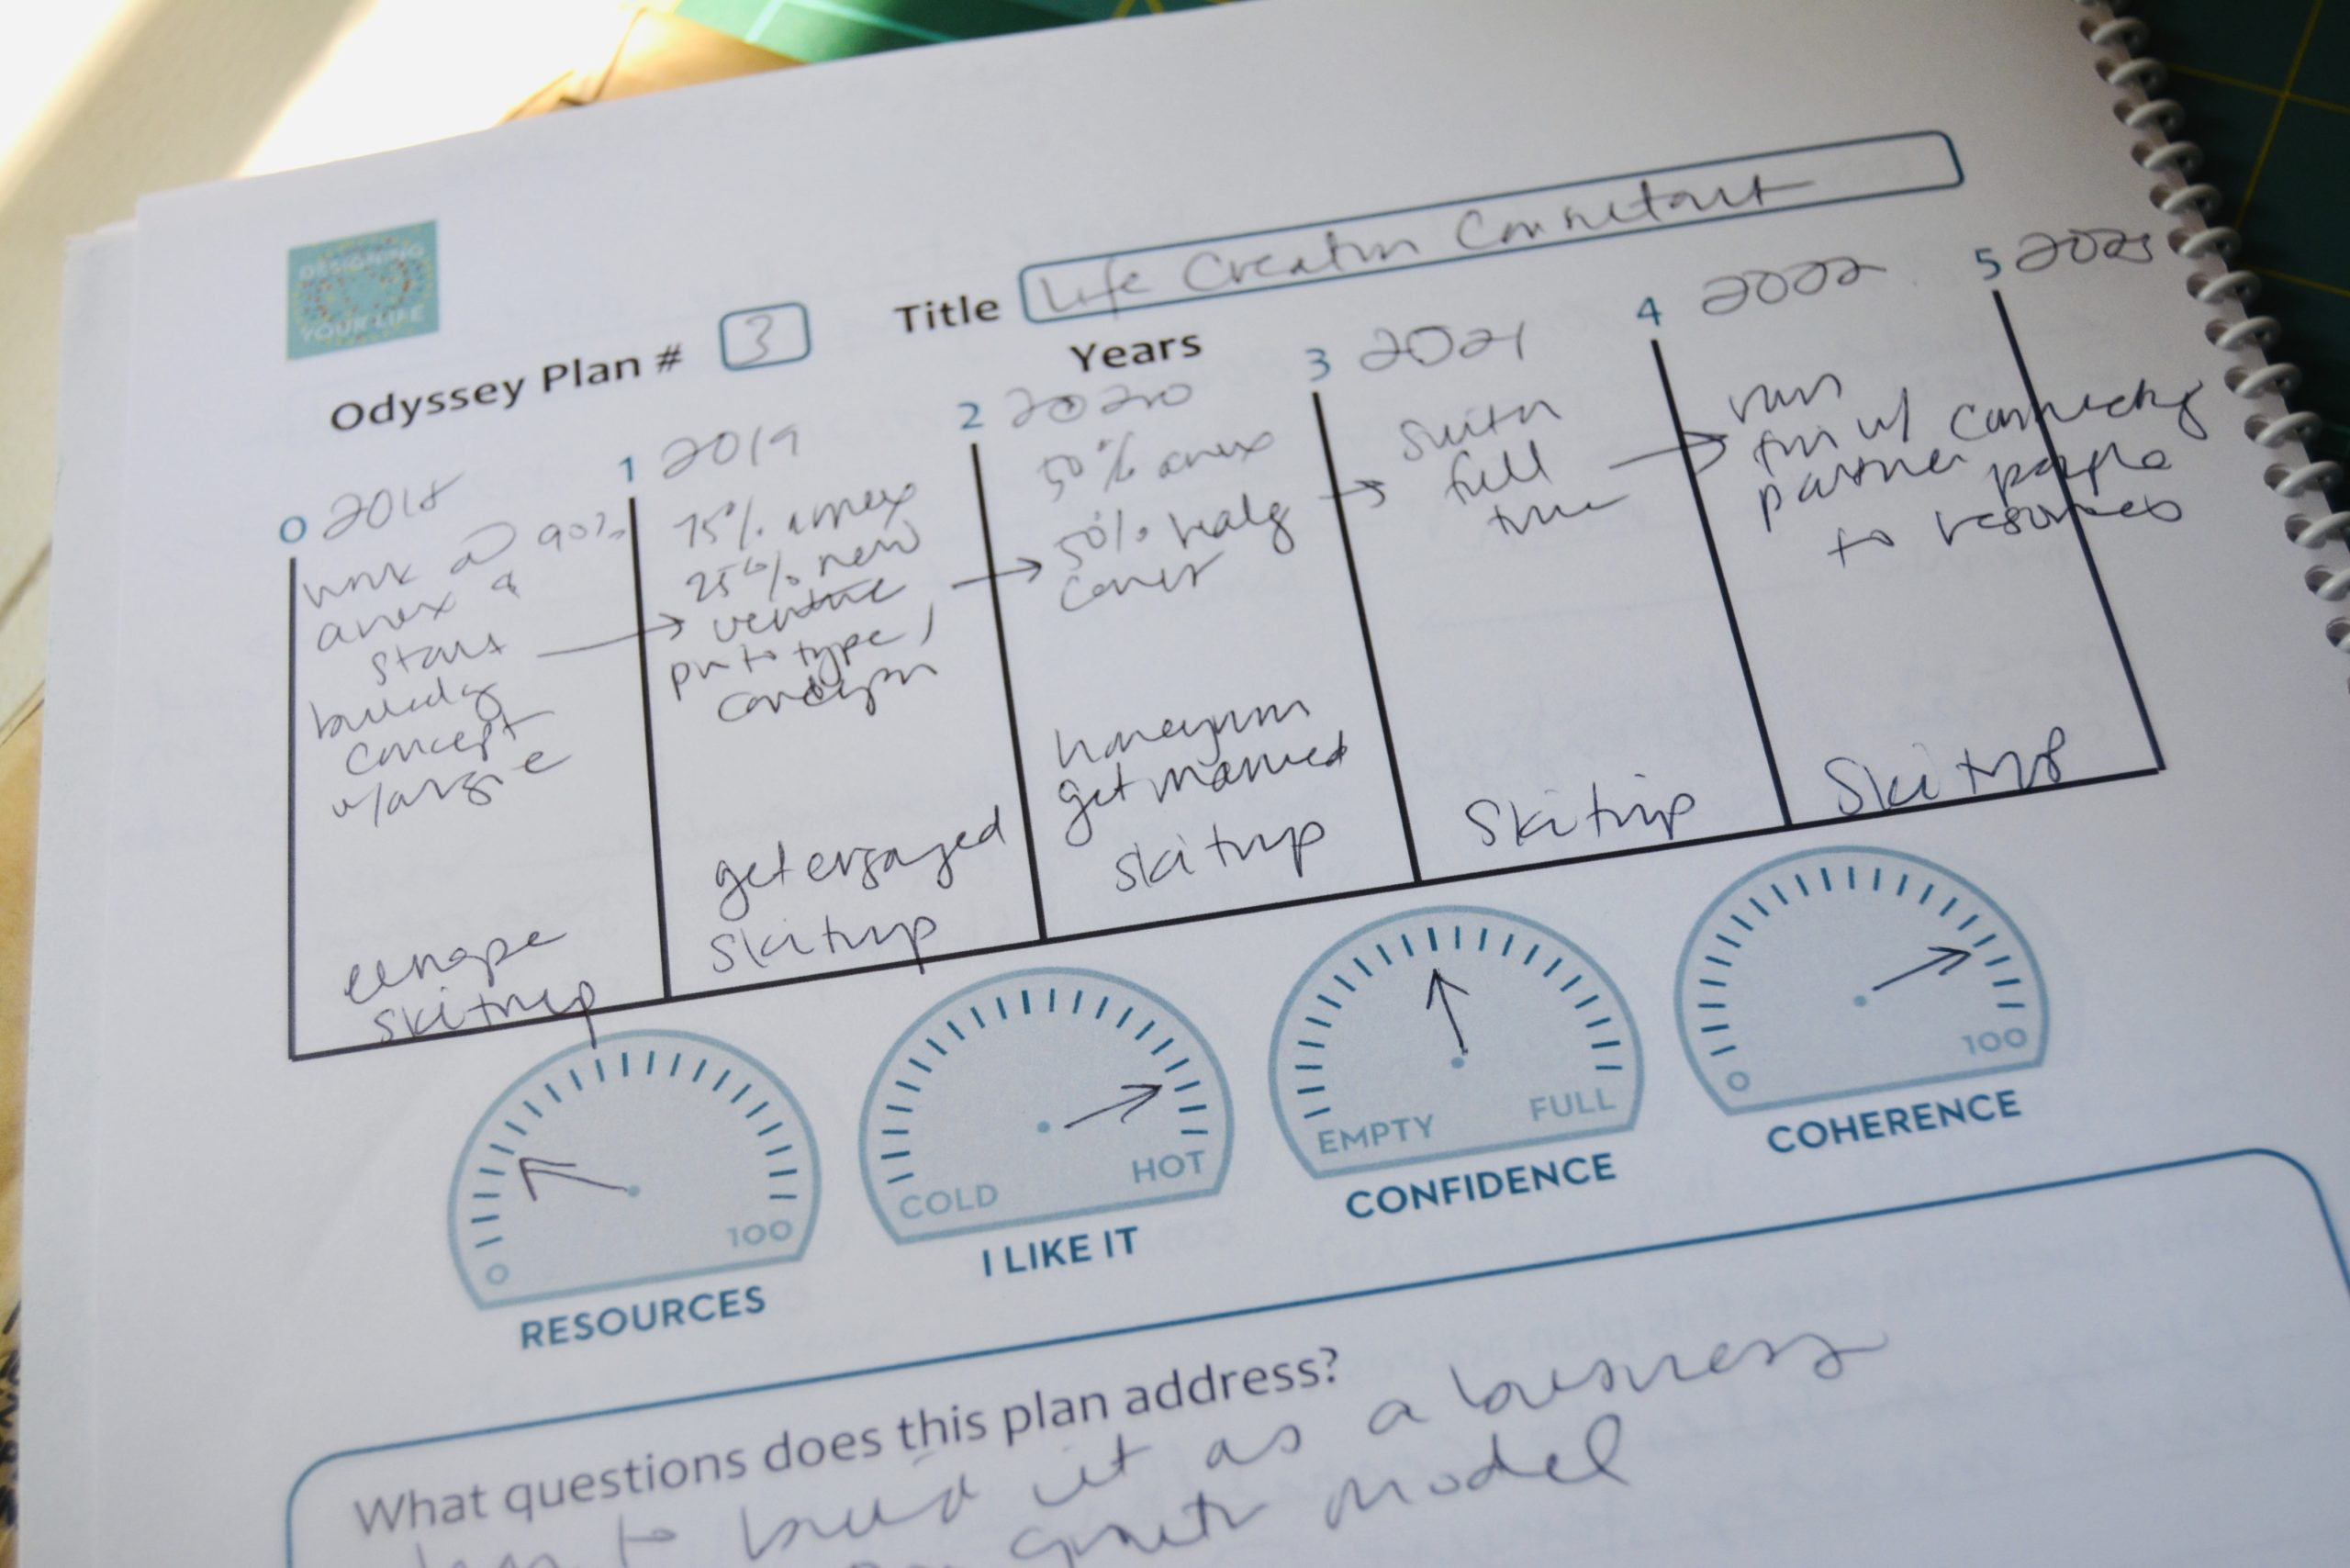 DESIGNING
YOUR LIFE
Odyssey Plan # 3
Title Life Creation Consultant
Years
0 2018
work @ 90%
amex &
start
building
concept
w/argie
europe
ski trip
1 2019
75% amex
25% new
venture
prototype,
get engaged
ski trip
2 2020
50% amex
50%
honeymoon
get married
ski trip
3 2021
switch
full
time
ski trip
4 2022
run
firm w/
partner
connecting
people
to resources
ski trip
5 2023
0
100
RESOURCES
COLD
HOT
I LIKE IT
EMPTY
FULL
CONFIDENCE
0
100
COHERENCE
What questions does this plan address?
how to build it as a business
growth model